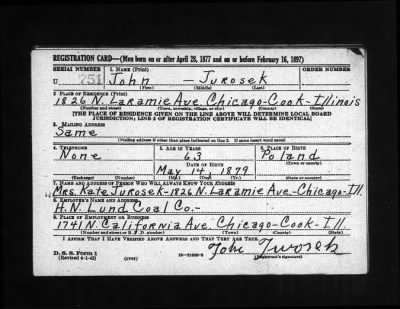 REGISTRATION CARD—(Men born on or after April 28, 1877 and on or before February 16, 1897)
SERIAL NUMBER 1. NAME (Print) ORDER NUMBER
U 751 John — Jurosek
(First) (Middle) (Last)
2. PLACE OF RESIDENCE (Print)
1826 N. Laramie Ave. Chicago-Cook-Illinois
(Number and street) (Town, township, village, or city) (County) (State)
[THE PLACE OF RESIDENCE GIVEN ON THE LINE ABOVE WILL DETERMINE LOCAL BOARD
JURISDICTION; LINE 2 OF REGISTRATION CERTIFICATE WILL BE IDENTICAL]
3. MAILING ADDRESS
Same
[Mailing address if other than place indicated on line 2. If same insert word same]
4. TELEPHONE 5. AGE IN YEARS 6. PLACE OF BIRTH
None 63 Poland
DATE OF BIRTH (Town or county)
May 14, 1879
(Exchange) (Number) (Mo.) (Day) (Yr.) (State or country)
7. NAME AND ADDRESS OF PERSON WHO WILL ALWAYS KNOW YOUR ADDRESS
Mrs. Kate Jurosek-1826 N. Laramie Ave.-Chicago-Ill.
8. EMPLOYER'S NAME AND ADDRESS
H. N. Lund Coal Co.-
9. PLACE OF EMPLOYMENT OR BUSINESS
1741 N. California Ave. Chicago-Cook-Ill.
(Number and street or R. F. D. number) (Town) (County) (State)
I AFFIRM THAT I HAVE VERIFIED ABOVE ANSWERS AND THAT THEY ARE TRUE.
D. S. S. Form 1
(Revised 4-1-42) (over) (Registrant's signature)
John Jurosek